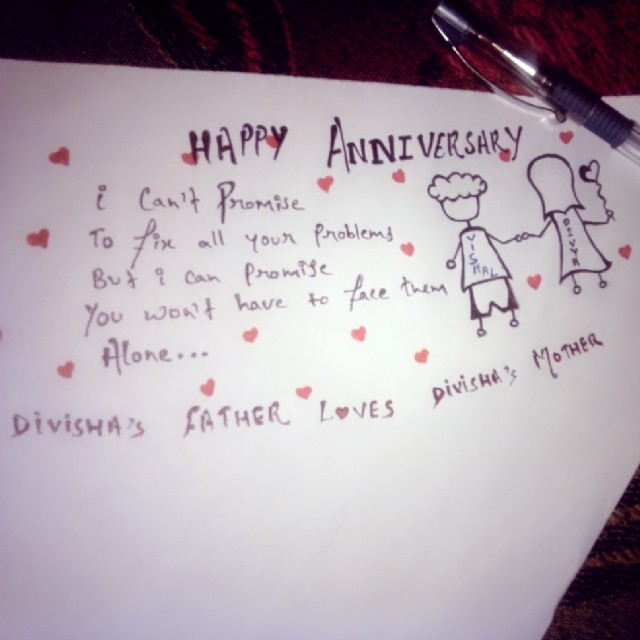 HAPPY ANNIVERSARY
i Can't Promise
To fix all your Problems
But i can promise
You won't have to face them
Alone...
VISHAL
DIVISHA's FATHER LOVES DIVISHA's MOTHER